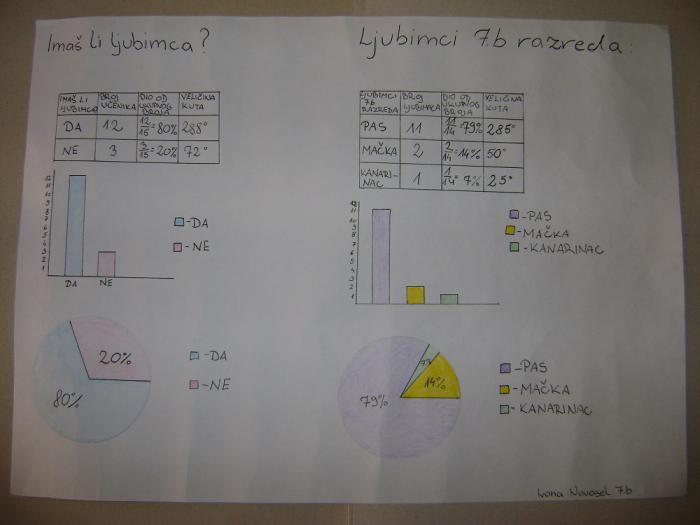 Imaš li ljubimca?
IMAŠ LI LJUBIMCA BROJ UČENIKA DIO OD UKUPNOG BROJA VELIČINA KUTA
DA 12 12/15=80% 288°
NE 3 3/15=20% 72°
12
11
10
9
8
7
6
5
4
3
2
1
DA NE
-DA
-NE
20%
80%
-DA
-NE
Ljubimci 7.b razreda:
LJUBIMCI 7.b RAZREDA BROJ LJUBIMACA DIO OD UKUPNOG BROJA VELIČINA KUTA
PAS 11 11/14=79% 285°
MAČKA 2 2/14=14% 50°
KANARI-NAC 1 1/14= 7% 25°
12
11
10
9
8
7
6
5
4
3
2
1
-PAS
-MAČKA
-KANARINAC
7%
14%
79%
-PAS
-MAČKA
-KANARINAC
Ivona Novosel 7.b